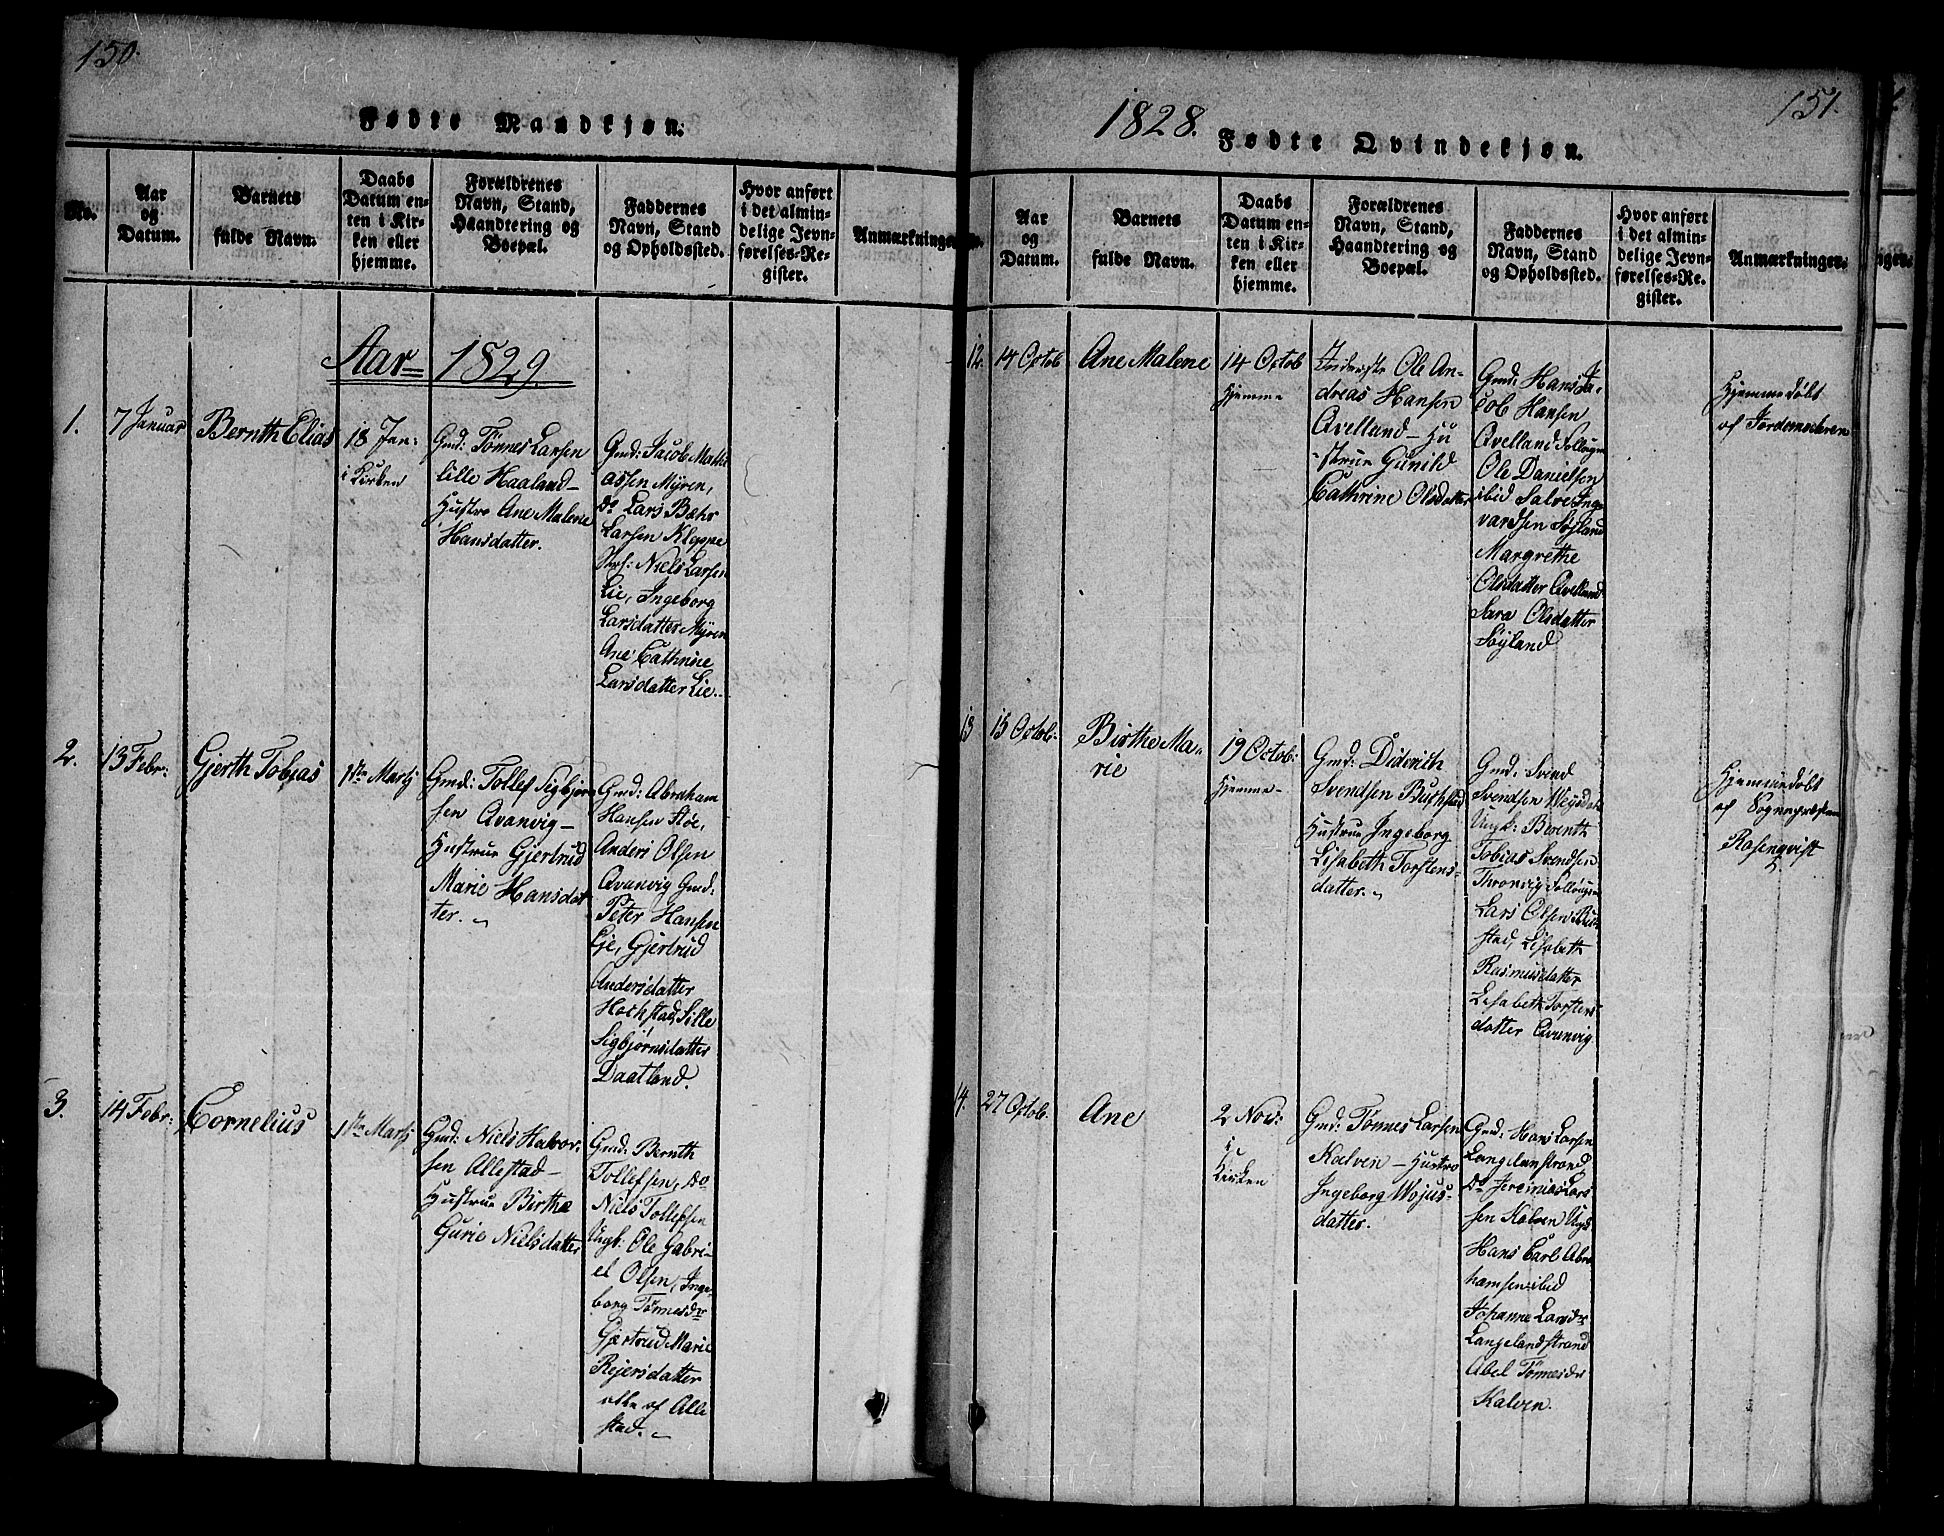 150.
Fødte Mandkjøn.
No.
Aar
og
Datum.
Barnets
fulde Navn.
Daabs
Datum en-
ten i Kir-
ken eller
hjemme.
Forældrenes
Navn, Stand,
Haandtering og
Boepæl.
Faddernes
Navn, Stand
og Opholdssted.
Hvor anført
i det almin-
delige Jevn-
førelses-Re-
gister.
Anmærkninger
Aar 1829.
1.
7 Januar
Bernth Elias
18 Jan:
i Kirken
Gmd: Tønnes Larsen
lille Haaland –
Hustro Ane Malene
Hansdatter.
Gmd: Jacob Mathi
assen Myren,
do Lars Bæhr
Larsen Kleppe
Niels Larsen
Lie, Ingeborg
Larsdatter Myren
Ane Cathrine
Larsdatter Lie.
2.
13 Febr:
Gjerth Tobias
1ste Martj
Gmd: Tollef Sigbjørn
sen Qvanvig –
Hustrue Gjertrud
Marie Hansdat
ter.
Gmd: Abraham
Hansen Støe,
Anders Olsen
Qvanvig Gmd:
Peter Hansen
Eje, Gjertrud
Andersdatter
Hochstad, Sille
Sigbjørnsdatter
Daatland.
3.
14 Febr:
Cornelius
1ste Martj
Gmd: Niels Halvor-
sen Allestad –
Hustrue Birthe
Gurie Nielsdatter
Gmd: Bernth
Tollefsen, do
Niels Tollefsen
Ungk. Ole Gabri-
el Olsen, Inge-
borg Tønnesdr
Gjertrud Marie
Rejersdatter
alle af Alle
stad.
1828.
151.
Fødte Qvindekjøn.
Aar
og
Datum.
Barnets
fulde Navn.
Daabs
Datum en-
ten i Kir-
ken eller
hjemme.
Forældrenes
Navn, Stand,
Haandtering og
Boepæl.
Faddernes
Navn, Stand
og Opholdssted.
Hvor anført
i det almin-
delige Jevn-
førelses-Re-
gister.
Anmærkninger.
12.
14 Octob
Ane Malene
14 Octob
Hjemme
Inderste Ole An-
dreas Hansen
Qvelland – Hu
strue Gunild
Cathrine Olsdatter
Gmd: Hans Ja-
cob Hansen
Qvelland
Ole Danielsen
ibid Salve Ing
vardsen Søyland
Margrethe
Olsdatter Qvelland
Sara Olsdatter
Søyland
Hjemmedøbt
af Jordemoderen
13
15 Octob:
Birthe Ma-
rie
19 Octob:
Hjemme –
Gmd: Diderich
Svendsen Buchstad
Hustrue Ingeborg
Lisabeth Torstens-
datter.
Gmd: Svend
Svendsen
Ungk: Berenth
Tobias Svendsen
Thronvig
Lars Olsen Buch
stad, Lisabeth
Rasmusdatter
Lisabeth Torstens
datter Qvanvig.
Hjemmedøbt
af Sognepresten
Rosenqvist
14.
27 Octob.
Ane
2 Nov:
i
Kirken
Gmd: Tønnes Larsen
Kalven – Hustro
Ingeborg Wojus-
datter.
Gmd: Hans Larsen
Langelandstrand
do Jeremias Lars
sen Kalven Ungk
Hans Carl Abra
hamsen ibid
Johanne Larsdr
Langelandstrand
Abel Tønnesdr
Kalven.